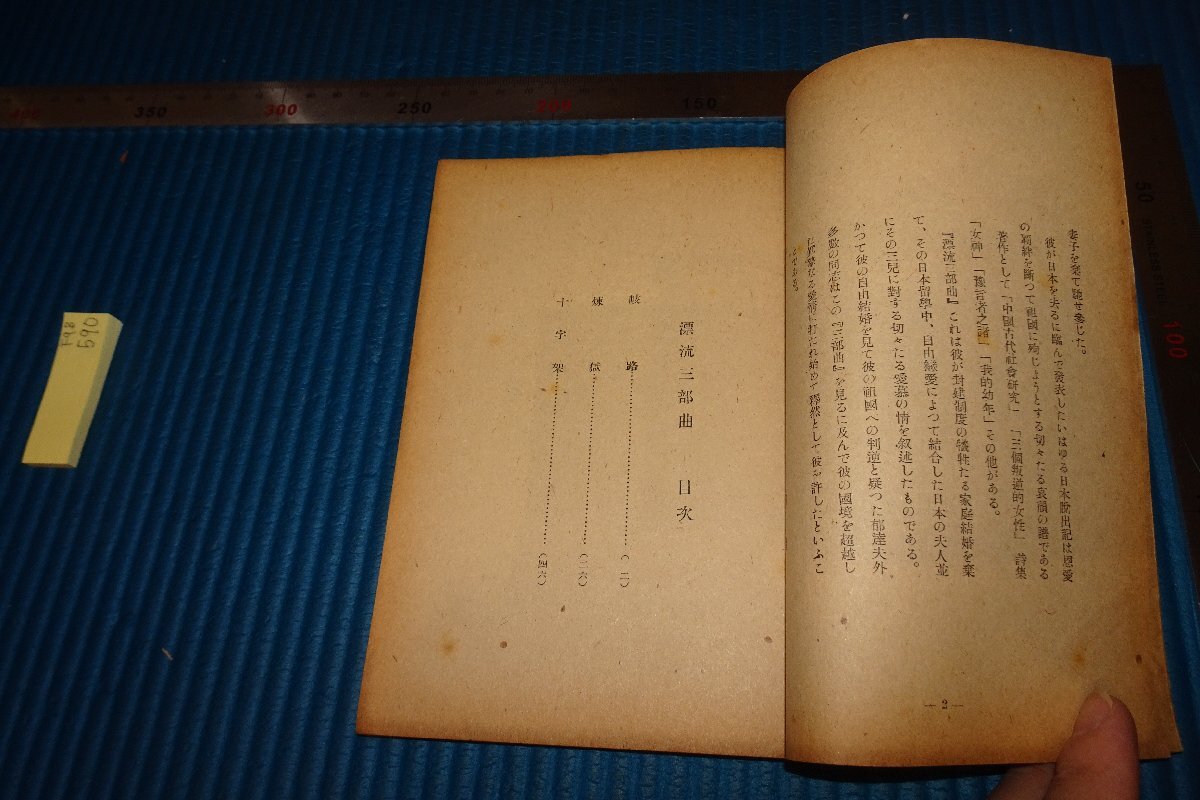 妻子を棄て馳せ參じた。
彼が日本を去るに臨んで發表したいはゆる日本脫出記は恩愛
の羈絆を斷つて祖國に殉じようとする切々たる哀韻の譜である
著作として「中國古代社會硏究」「三個叛逆的女性」詩集
「女神」「豫言者之詩」「我的幼年」その他がある。
『漂流三部曲』これは彼が封建制度の犧牲たる家庭結婚を棄
て、その日本留學中、自由戀愛によつて結合した日本の夫人並
にその三兒に對する切々たる愛慕の情を叙述したものである。
かつて彼の自由結婚を見て彼の祖國への判逆と疑つた郁達夫外
多數の同志はこの『三部曲』を見るに及んで彼の國境を超越し
愛情に打たれ始めて釋然として彼を許したといふこ
とである。
—2—
漂流三部曲 目次
歧路……(二)
煉獄……(二六)
十字架……(四六)
350
300
250
200
150
50
100
F98
590